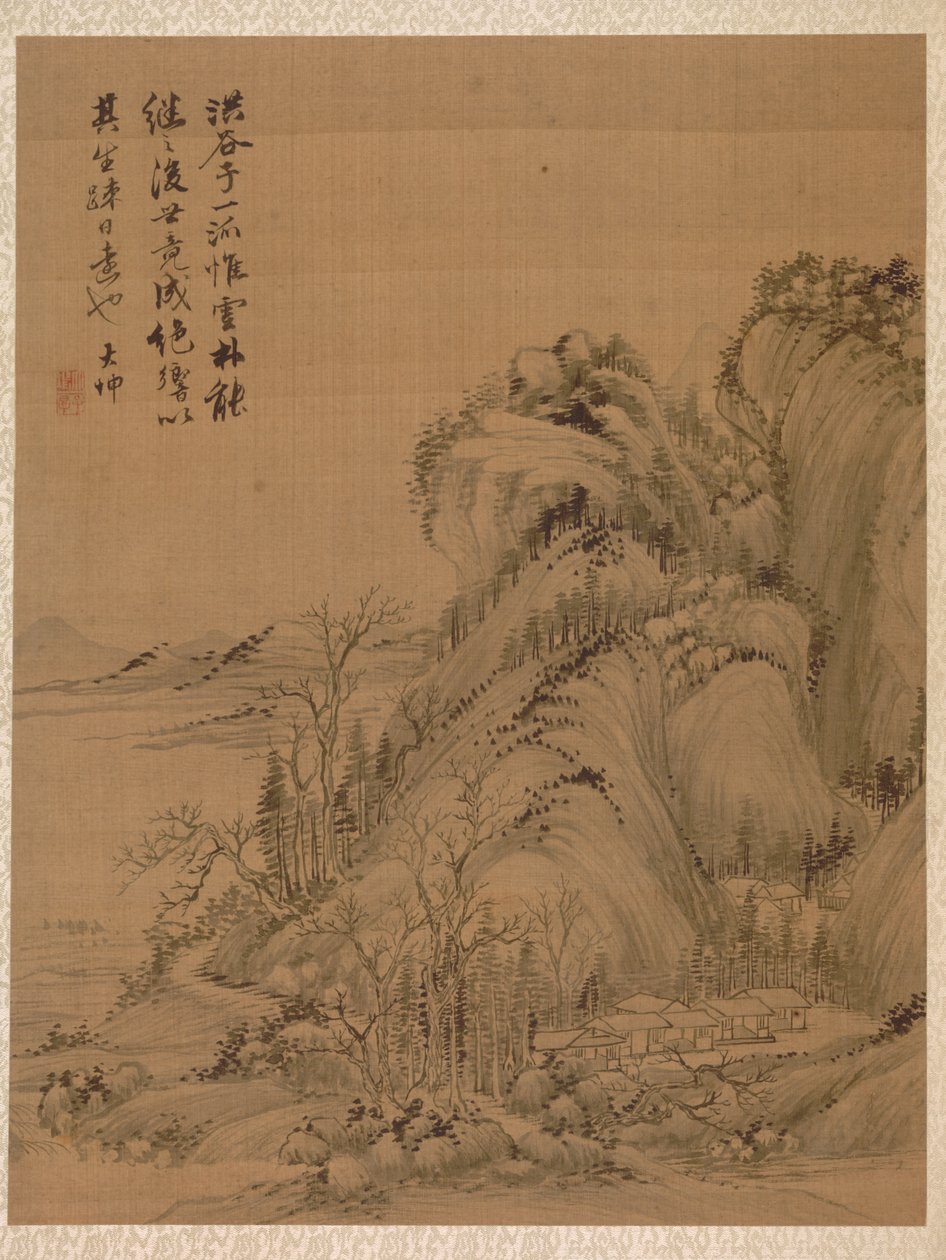 洪谷子一派惟雲林能
継之後世竟成絶響以
其生踈日遠也 大坤